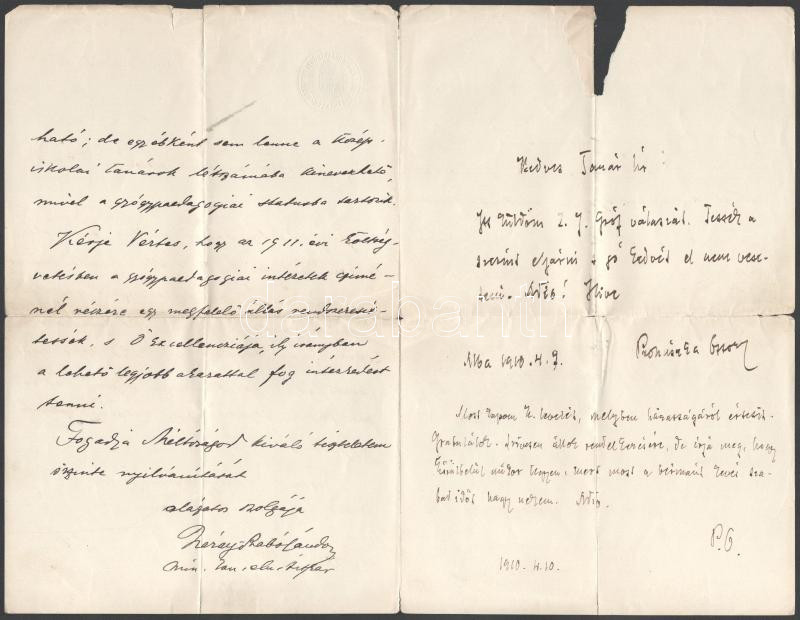 ható; de egyébként sem lenne a közép-
iskolai tanárok létszámába kinevezhető,
mivel a gyógypaedagogiai statusba tartozik.
Kérje Vértes, hogy az 1911. évi költség-
vetésben a gyógypaedagogiai intézetek czimé-
nél részére egy megfelelő állás rendszeresit-
tessék, s Ő Excellencziája, ily irányban
a lehető legjobb akarattal fog intézkedést
tenni.
Fogadja Méltóságod kiváló tiszteletem
őszinte nyilvánítását
alázatos szolgája
Szabó Sándor
min. tan.
Kedves Tanár Úr!
Itt küldöm Z. J. Gróf válaszát. Tessék a
szerint eljárni s jó kedvét el nem vesz-
teni. Adio! Hive
Alba 1910. 4. 9.
Prohászka Ottokár
Most kapom K. levelét, melyben házasságáról értesít.
Gratulálok. Szívesen állok rendelkezésére, de írja meg, hogy
mikor legyen, mert most a bérmálás kevés sza-
bad időt hagy nekem. Adio.
P. O.
1910. 4. 10.
darabanth